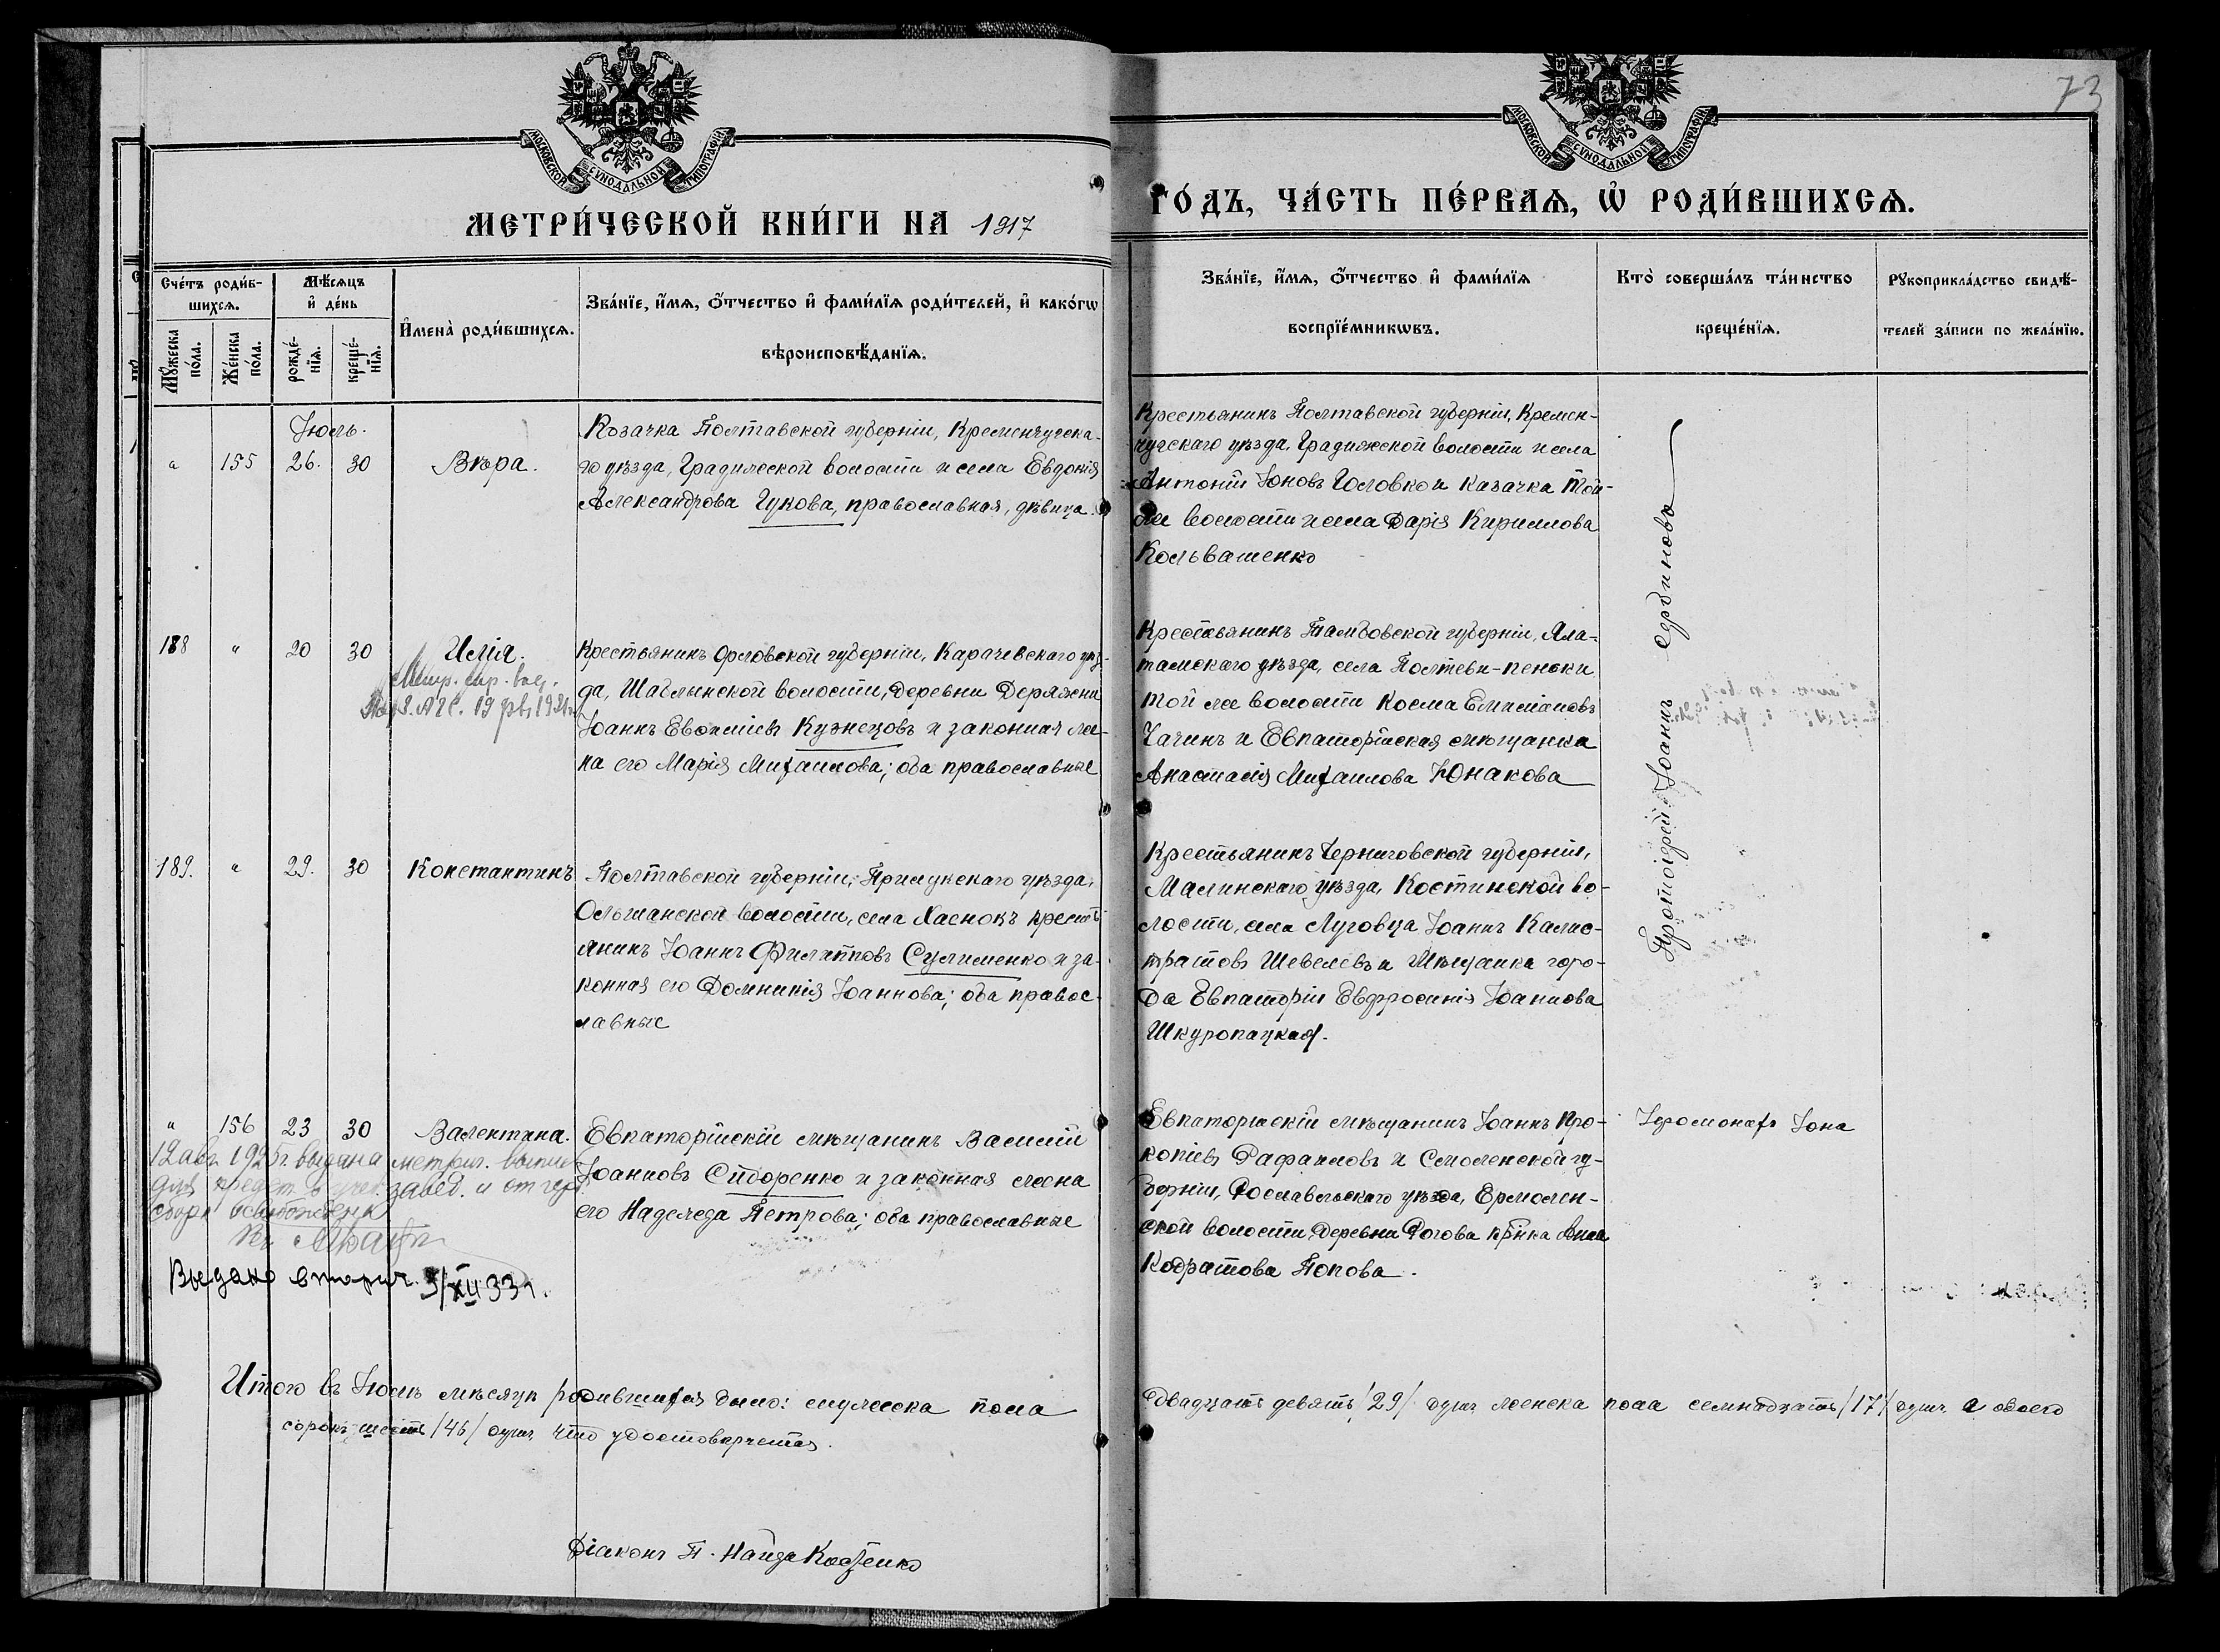 73
МОСКОВСКОЙ СѴНОДАЛЬНОЙ ТИПОГРАФІИ
МОСКОВСКОЙ СѴНОДАЛЬНОЙ ТИПОГРАФІИ
МЕТРИ́ЧЕСКОЙ КНИ́ГИ НА 1917
ГО́ДЪ, ЧА́СТЬ ПЕ́РВАѦ, Ѽ РОДИ́ВШИХСѦ.
Сче́тъ роди́в-
шихсѧ.
Мꙋ́жеска по́ла.
Же́нска по́ла.
Мѣ́сѧцъ
и҆ де́нь
рожде́-
нїѧ.
креще́-
нїѧ.
И҆мена̀ роди́вшихсѧ.
Зва́нїе, и҆́мѧ, ѻ҆́тчество и҆ фами́лїѧ роди́телей, и҆ како́гѡ
вѣроисповѣ́данїѧ.
Зва́нїе, и҆́мѧ, ѻ҆́тчество и҆ фами́лїѧ
воспрїе́мникѡвъ.
Кто̀ соверша́лъ та́инство
креще́нїѧ.
Рꙋкоприкла́дство свидѣ́-
телей за́писи по жела́нїю.
Іюль.
" 155 26. 30 Вѣра.
Козачка Полтавской губерніи, Кременчугска-
го уѣзда, Градижской волости и села Евдокія
Александрова Гукова, православная, дѣвица.
Крестьянинъ Полтавской губерніи, Кремен-
чугскаго уѣзда, Градижской волости и села
Антоній Іоновъ Головко и казачка той-
же волости и села Дарія Кириллова
Кольвашенко
188 " 20 30 Илія.
Метр. выр. выд.
19 1921
Крестьянинъ Орловской губерніи, Карачевскаго уѣз-
да, Шаблынской волости, деревни Деряжни
Іоаннъ Евоиміевъ Кузнецовъ и законная же-
на его Марія Михаилова; оба православные
Крестьянинъ Тамбовской губерніи, Ела-
томскаго уѣзда, села Полтевы-пеньки
той же волости Косма Емиліановъ
Чачинъ и Евпаторійская мѣщанка
Анастасія Михаилова Юнакова
189. " 29. 30 Константинъ
Полтавской губерніи, Прилукскаго уѣзда,
Ольшанской волости, села Хаенокъ кресть-
янинъ Іоаннъ Филипповъ Сулименко и за-
конная его Домникія Іоаннова; оба правос-
лавные
Крестьянинъ Черниговской губерніи,
Мглинскаго уѣзда, Костинской во-
лости, села Луговца Іоаннъ Калис-
тратовъ Шевелевъ и мѣщанка горо-
да Евпаторіи Евфросинія Іоаннова
Шкуропацкая.
Протоіерей Іоаннъ Сербиновъ
" 156 23 30 Валентина.
12 авг. 1925 г. выдана метрич. выпись
для предст. в учеб. завед. и от герб.
сбора освобожден
Выдано вторич. 5/XII 33 г.
Евпаторійскій мѣщанинъ Василій
Іоанновъ Сидоренко и законная жена
его Надежда Петрова; оба православные
Евпаторійскій мѣщанинъ Іоаннъ Про-
копіевъ Рафаиловъ и Смоленской гу-
берніи, Рославльскаго уѣзда, Ермолен-
ской волости, деревни Рогова кр-нка Анна
Кодратова Попова.
Іеромонахъ Іона
Итого въ Іюлѣ мѣсяцѣ родившихся было: мужеска пола
двадцать девять /29/ душъ женска пола семнадцать /17/ душъ а обоего
сорокъ шесть /46/ душъ что удостовѣряется.
Діаконъ П. Найда Костенко